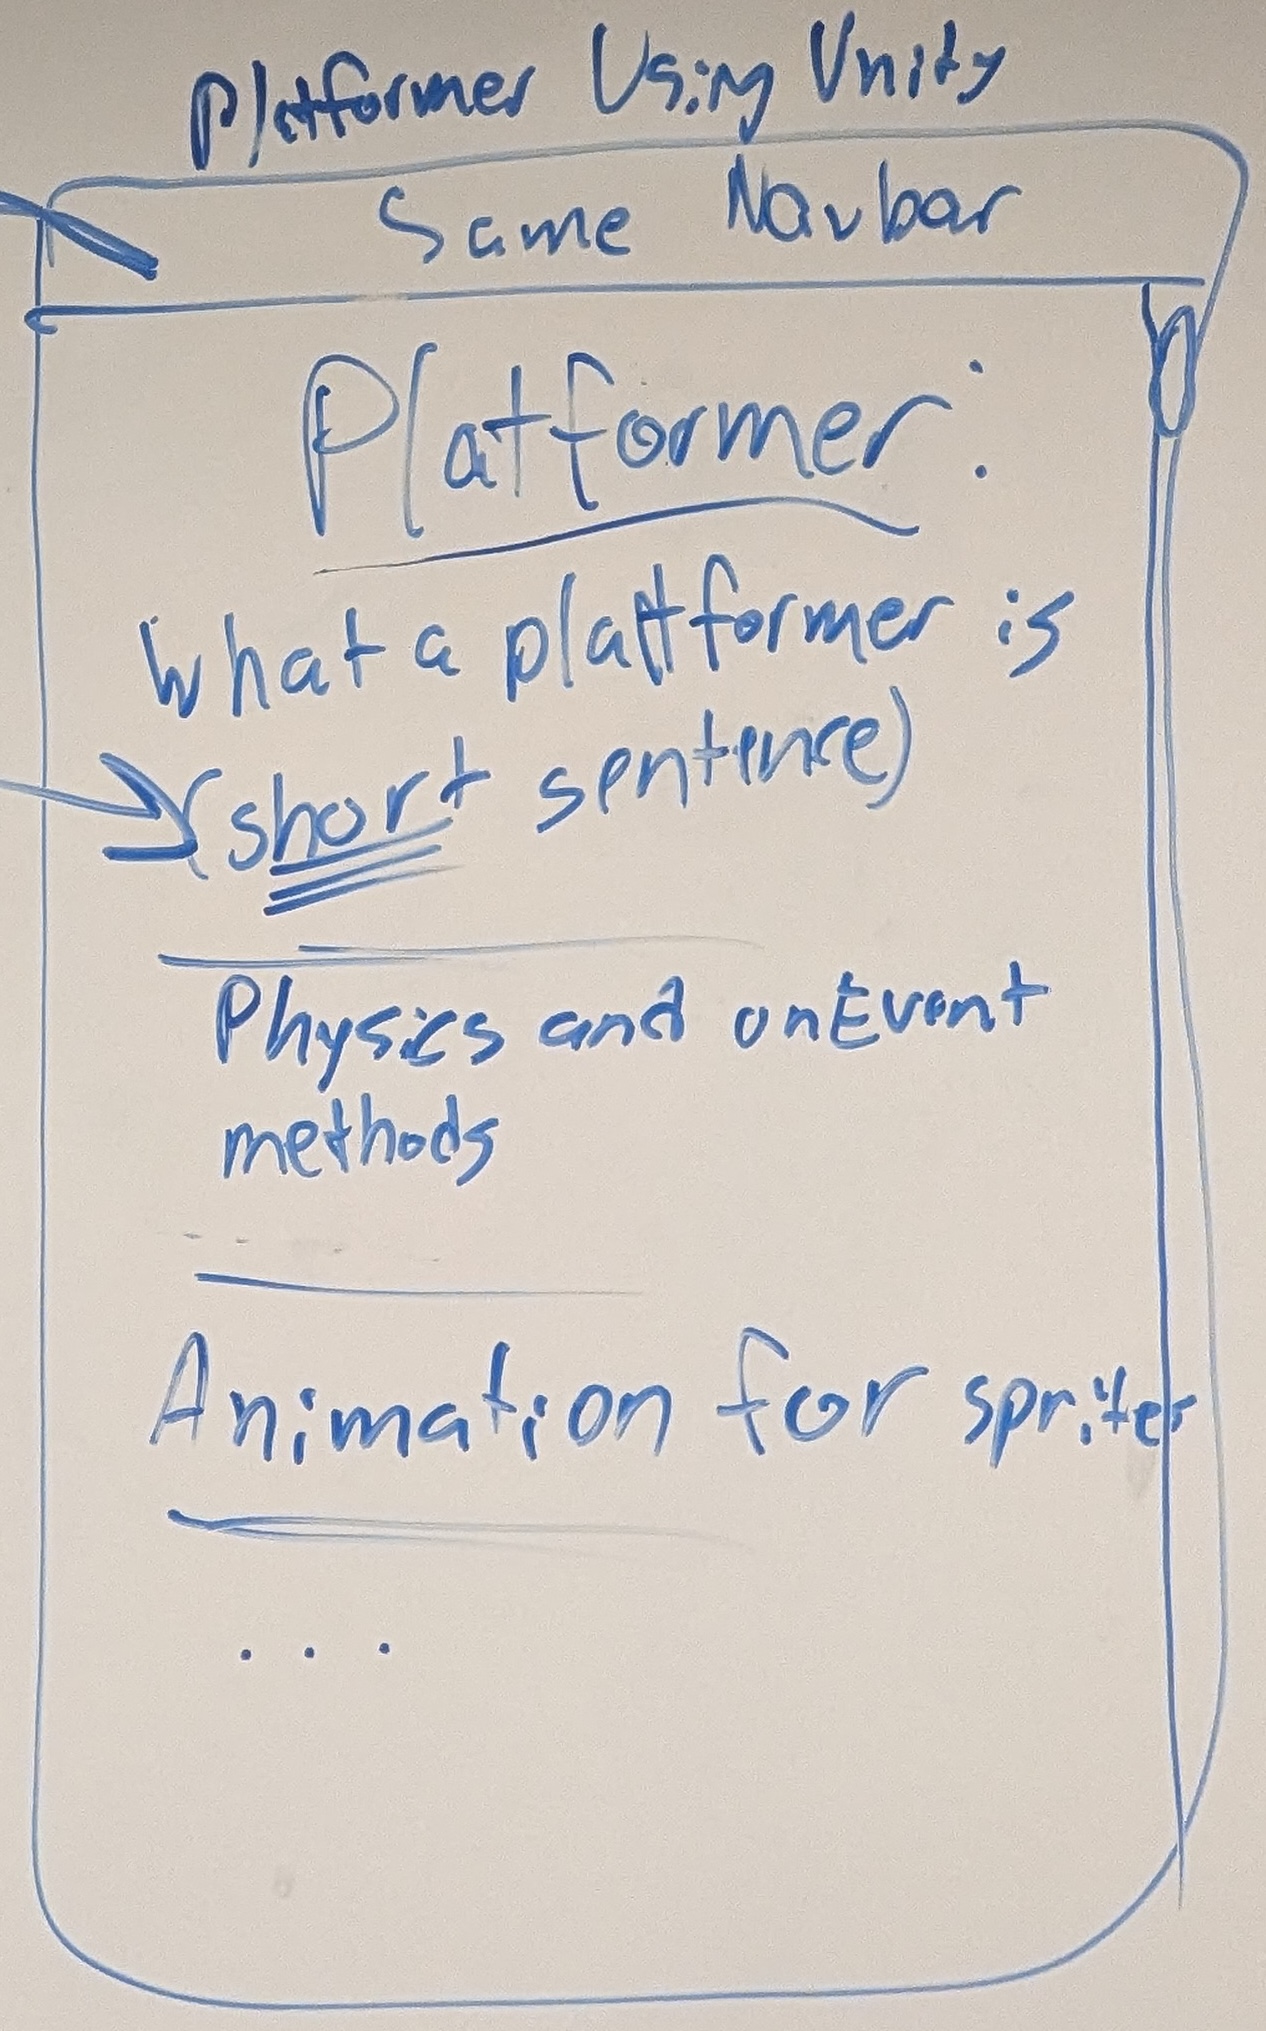 Platformer Using Unity
Same Navbar
Platformer:
What a platformer is
(short sentence)
Physics and onEvent
methods
Animation for sprites
. . .